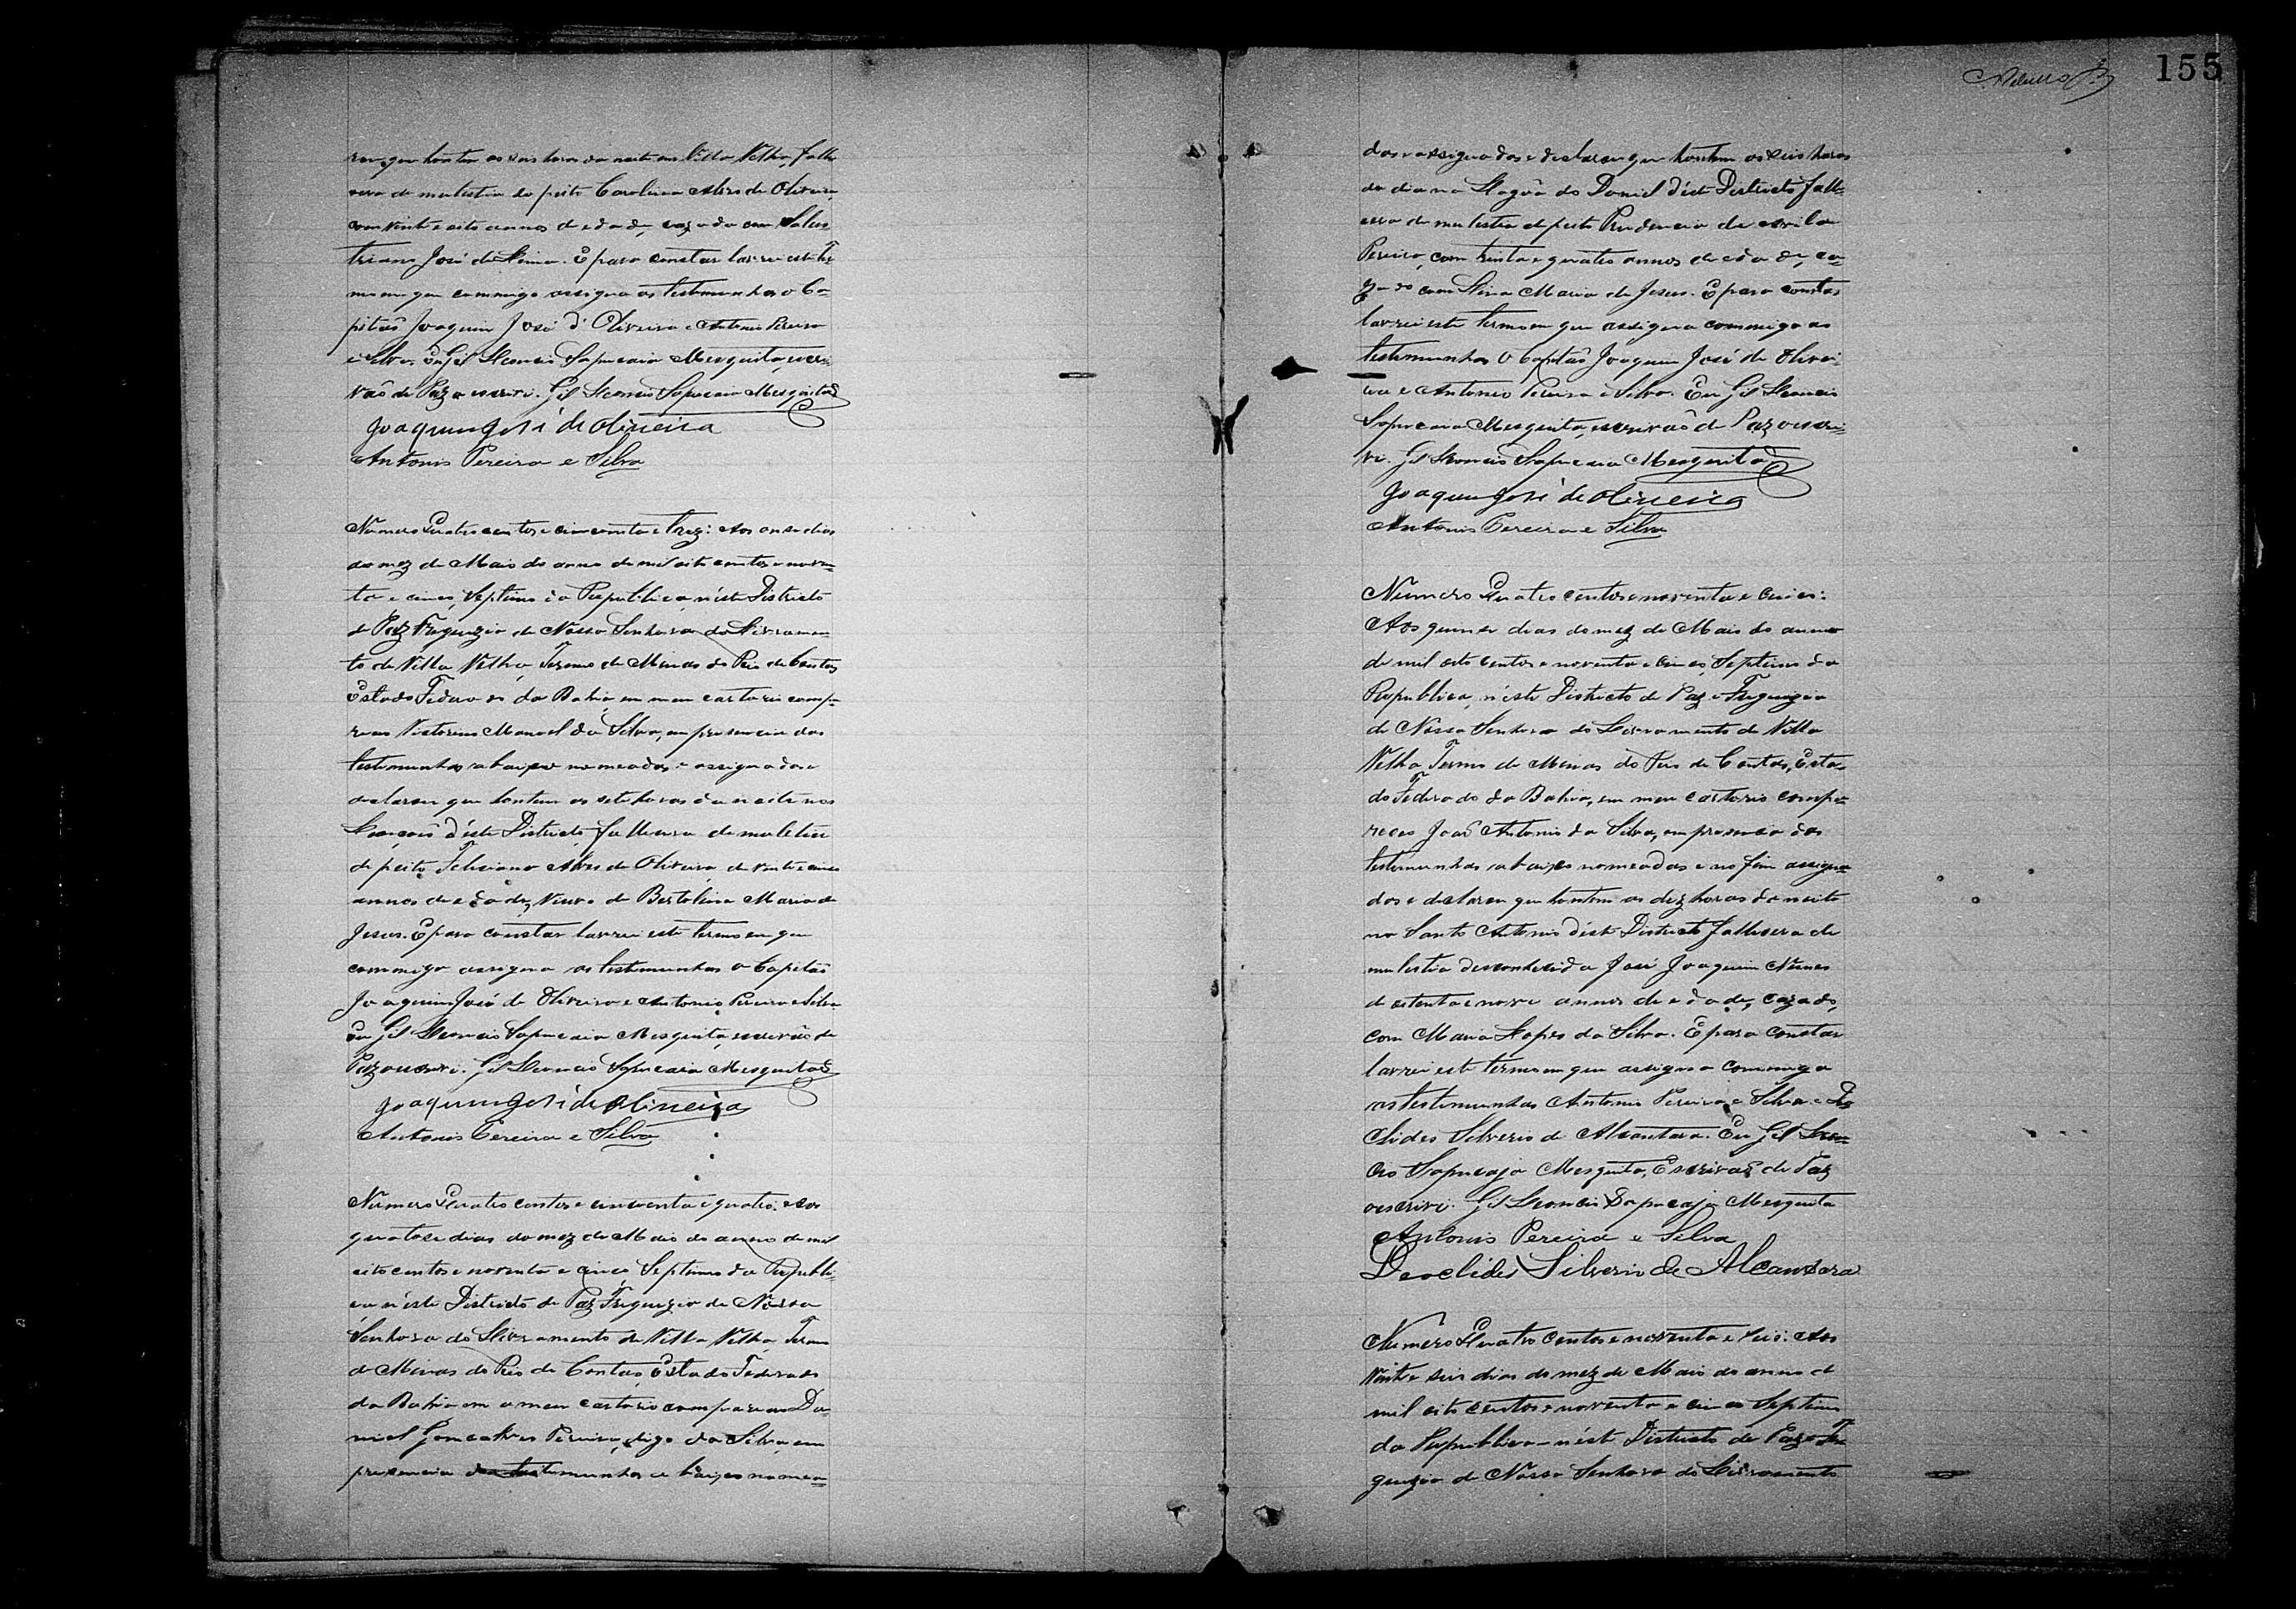 rou que hontem as seis horas da noite em Villa Velha, falle-
cera de mulestia do peito Carolina Alves de Oliveira,
com vinte e oito annos de edade, cazada com Salus-
triano José de Lima. E para constar lavrei este ter-
mo em que commigo assigna as testemunhas o Ca-
pitão Joaquim José d'Oliveira e Antonio Pereira
e Silva. Eu Gil Leoncio Sapucaia Mesquita, escri-
vaõ de Paz o escrevi. Gil Leoncio Sapucaia Mesquita
Joaquim José de Oliveira
Antonio Pereira e Silva
Numero Quatro centos e cincoenta e trez: Aos onze dias
do mez de Maio do anno de mil oito centos e noven-
ta e cinco, Septimo da Republica, n'este Districto
de Paz Freguezia de Nossa Senhora do Livramen-
to de Villa Velha, Termo de Minas do Rio de Contas,
Estado Federado da Bahia, em meu cartorio compa-
receu Victorino Manoel da Silva, em presencia das
testemunhas abaixo nomeadas e assignadas e
declarou que hontem as sete horas da noite nos
d'este Districto, fallecera de mulestia
de peito Feliciano Alves de Oliveira, de vinte e cinco
annos de edade, viuvo de Bertolina Maria de
Jesus. E para constar lavrei este termo em que
commigo assigna as testemunhas o Capitão
Joaquim José de Oliveira e Antonio Pereira e Silva.
Eu Gil Leoncio Sapucaia Mesquita, escrivão de
Paz o escrevi. Gil Leoncio Sapucaia Mesquita
Joaquim José de Oliveira
Antonio Pereira e Silva
Numero Quatro centos e cincoenta e quatro: Aos
quatorze dias do mez de Maio do anno de mil
oito centos e noventa e cinco Septimo da Republi-
ca n'este Districto de Paz Freguezia de Nossa
Senhora do Livramento de Villa Velha, Termo
de Minas do Rio de Contas, Estado Federado
da Bahia em o meu cartorio compareceu Da-
niel Goncalves Pereira, digo da Silva, em
presencia das testemunhas abaixo nomea-
155
das e assignadas e declarou que hontem as seis horas
do dia na Lagoâ do Daniel d'este Districto falle-
cera de mulestia de peito Prudencio de
Pereira, com trinta e quatro annos de edade, ca-
zado com Maria de Jesus. E para constar
lavrei este termo em que assigna commigo as
testemunhas o Capitão Joaquim José de Olivei-
ra e Antonio Pereira e Silva. Eu Gil Leoncio
Sapucaia Mesquita, escrivaõ de Paz o escre-
vi. Gil Leoncio Sapucaia Mesquita
Joaquim José de Oliveira
Antonio Pereira e Silva
Numero Quatro centos e noventa e cinco:
Aos quinse dias do mez de Maio do anno
de mil oito centos e noventa e cinco, Septimo da
Republica, n'este Districto de Paz e Freguezia
de Nossa Senhora do Livramento de Villa
Velha Termo de Minas do Rio de Contas, Esta-
do Federado da Bahia, em meu cartorio compa-
receo Joaõ Antonio da Silva, em presencia das
testemunhas abaixo nomeadas e no fim assigna-
das e declarou que hontem as dez horas da noite
no Santo Antonio d'este Districto fallecera de
mulestia desconhecida José Joaquim Nunes
de setenta e nove annos de edade, cazado,
com Maria Lopes da Silva. E para constar
lavrei este termo em que assigna commigo
as testemunhas Antonio Pereira e Silva e De-
clides Silverio de Alcantara. Eu Gil Leon-
cio Sapucaja Mesquita, Escrivaõ de Paz
o escrivi. Gil Leoncio Sapucaja Mesquita
Antonio Pereira e Silva
Deoclides Silverio de Alcantara
Numero Quatro centos e noventa e seis: Aos
vinte e seis dias do mez de Maio do anno de
mil oito centos e noventa e cinco Septimo
da Republica n'este Districto de Paz e Fre-
guezia de Nossa Senhora do Livramento